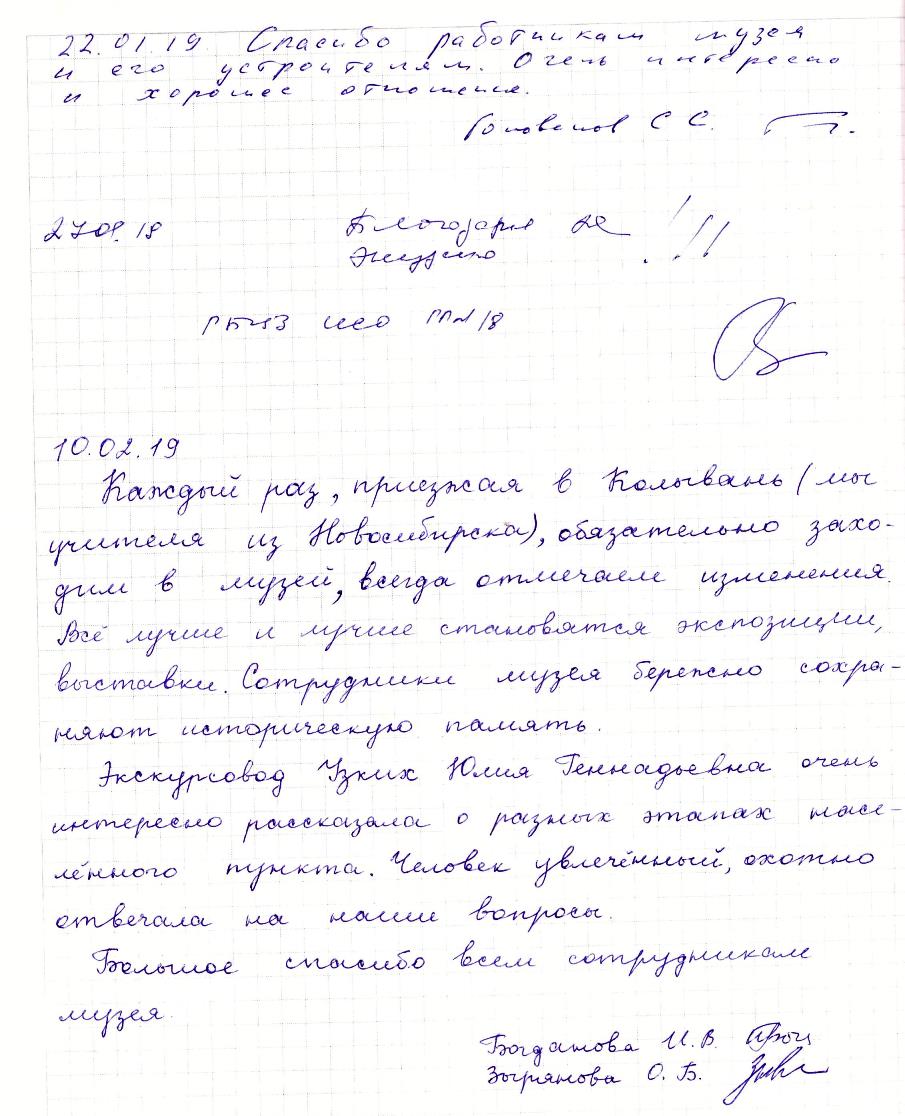 22.01.19 Спасибо работникам музея
и его устроителям. Очень интересно
и хорошее отношение.
С С.
Благодарен
10.02.19
Каждый раз, приезжая в Колывань (мы
учителя из Новосибирска), обязательно захо-
дим в музей, всегда отмечаем изменения.
Всё лучше и лучше становятся экспозиции,
выставки. Сотрудники музея бережно сохра-
няют историческую память.
Экскурсовод Узких Юлия Геннадьевна очень
интересно рассказала о разных этапах насе-
лённого пункта. Человек увлечённый, охотно
отвечала на наши вопросы.
Большое спасибо всем сотрудникам
музея.
Богданова И.В.
Зырянова О.Б.